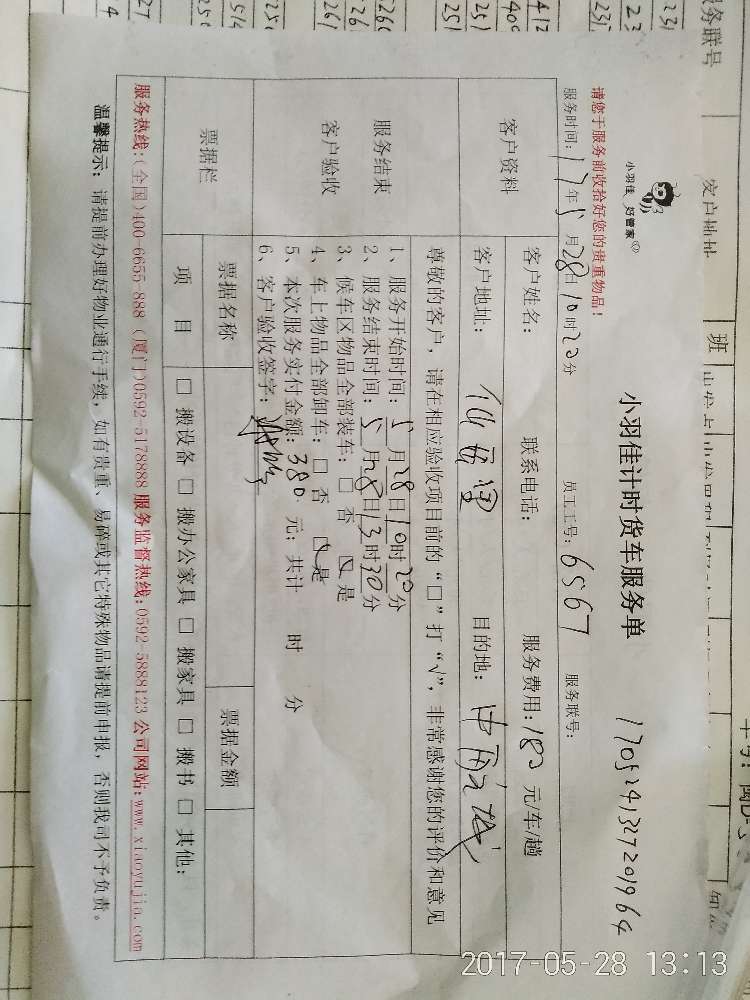 小羽佳计时货车服务单
1705241327201964
小羽佳 好管家
请您于服务前收拾好您的贵重物品！
服务时间：17年5月28日10时20分 员工工号：6567 服务联号：
客户资料 客户姓名： 联系电话： 服务费用：180 元/车/趟
客户地址： 目的地：
服务结束
客户验收
尊敬的客户，请在相应验收项目前的“□”打“√”，非常感谢您的评价和意见
1、服务开始时间：5月28日10时20分
2、服务结束时间：5月28日13时30分
3、候车区物品全部装车：□ 否 ☑ 是
4、车上物品全部卸车：□ 否 ☑ 是
5、本次服务实付金额：380 元；共计 时 分
6、客户验收签字：
票据栏 票据名称 票据金额
项 目 □ 搬设备 □ 搬办公家具 □ 搬家具 □ 搬书 □ 其他：
服务热线：(全国)400-6655-888 (厦门)0592-5178888 服务监督热线：0592-5888123 公司网站：www.xiaoyujia.com
温馨提示：请提前办理好物业通行手续，如有贵重、易碎或其它特殊物品请提前申报，否则我司不予负责。
务联号
客户地址
班
2017-05-28 13:13